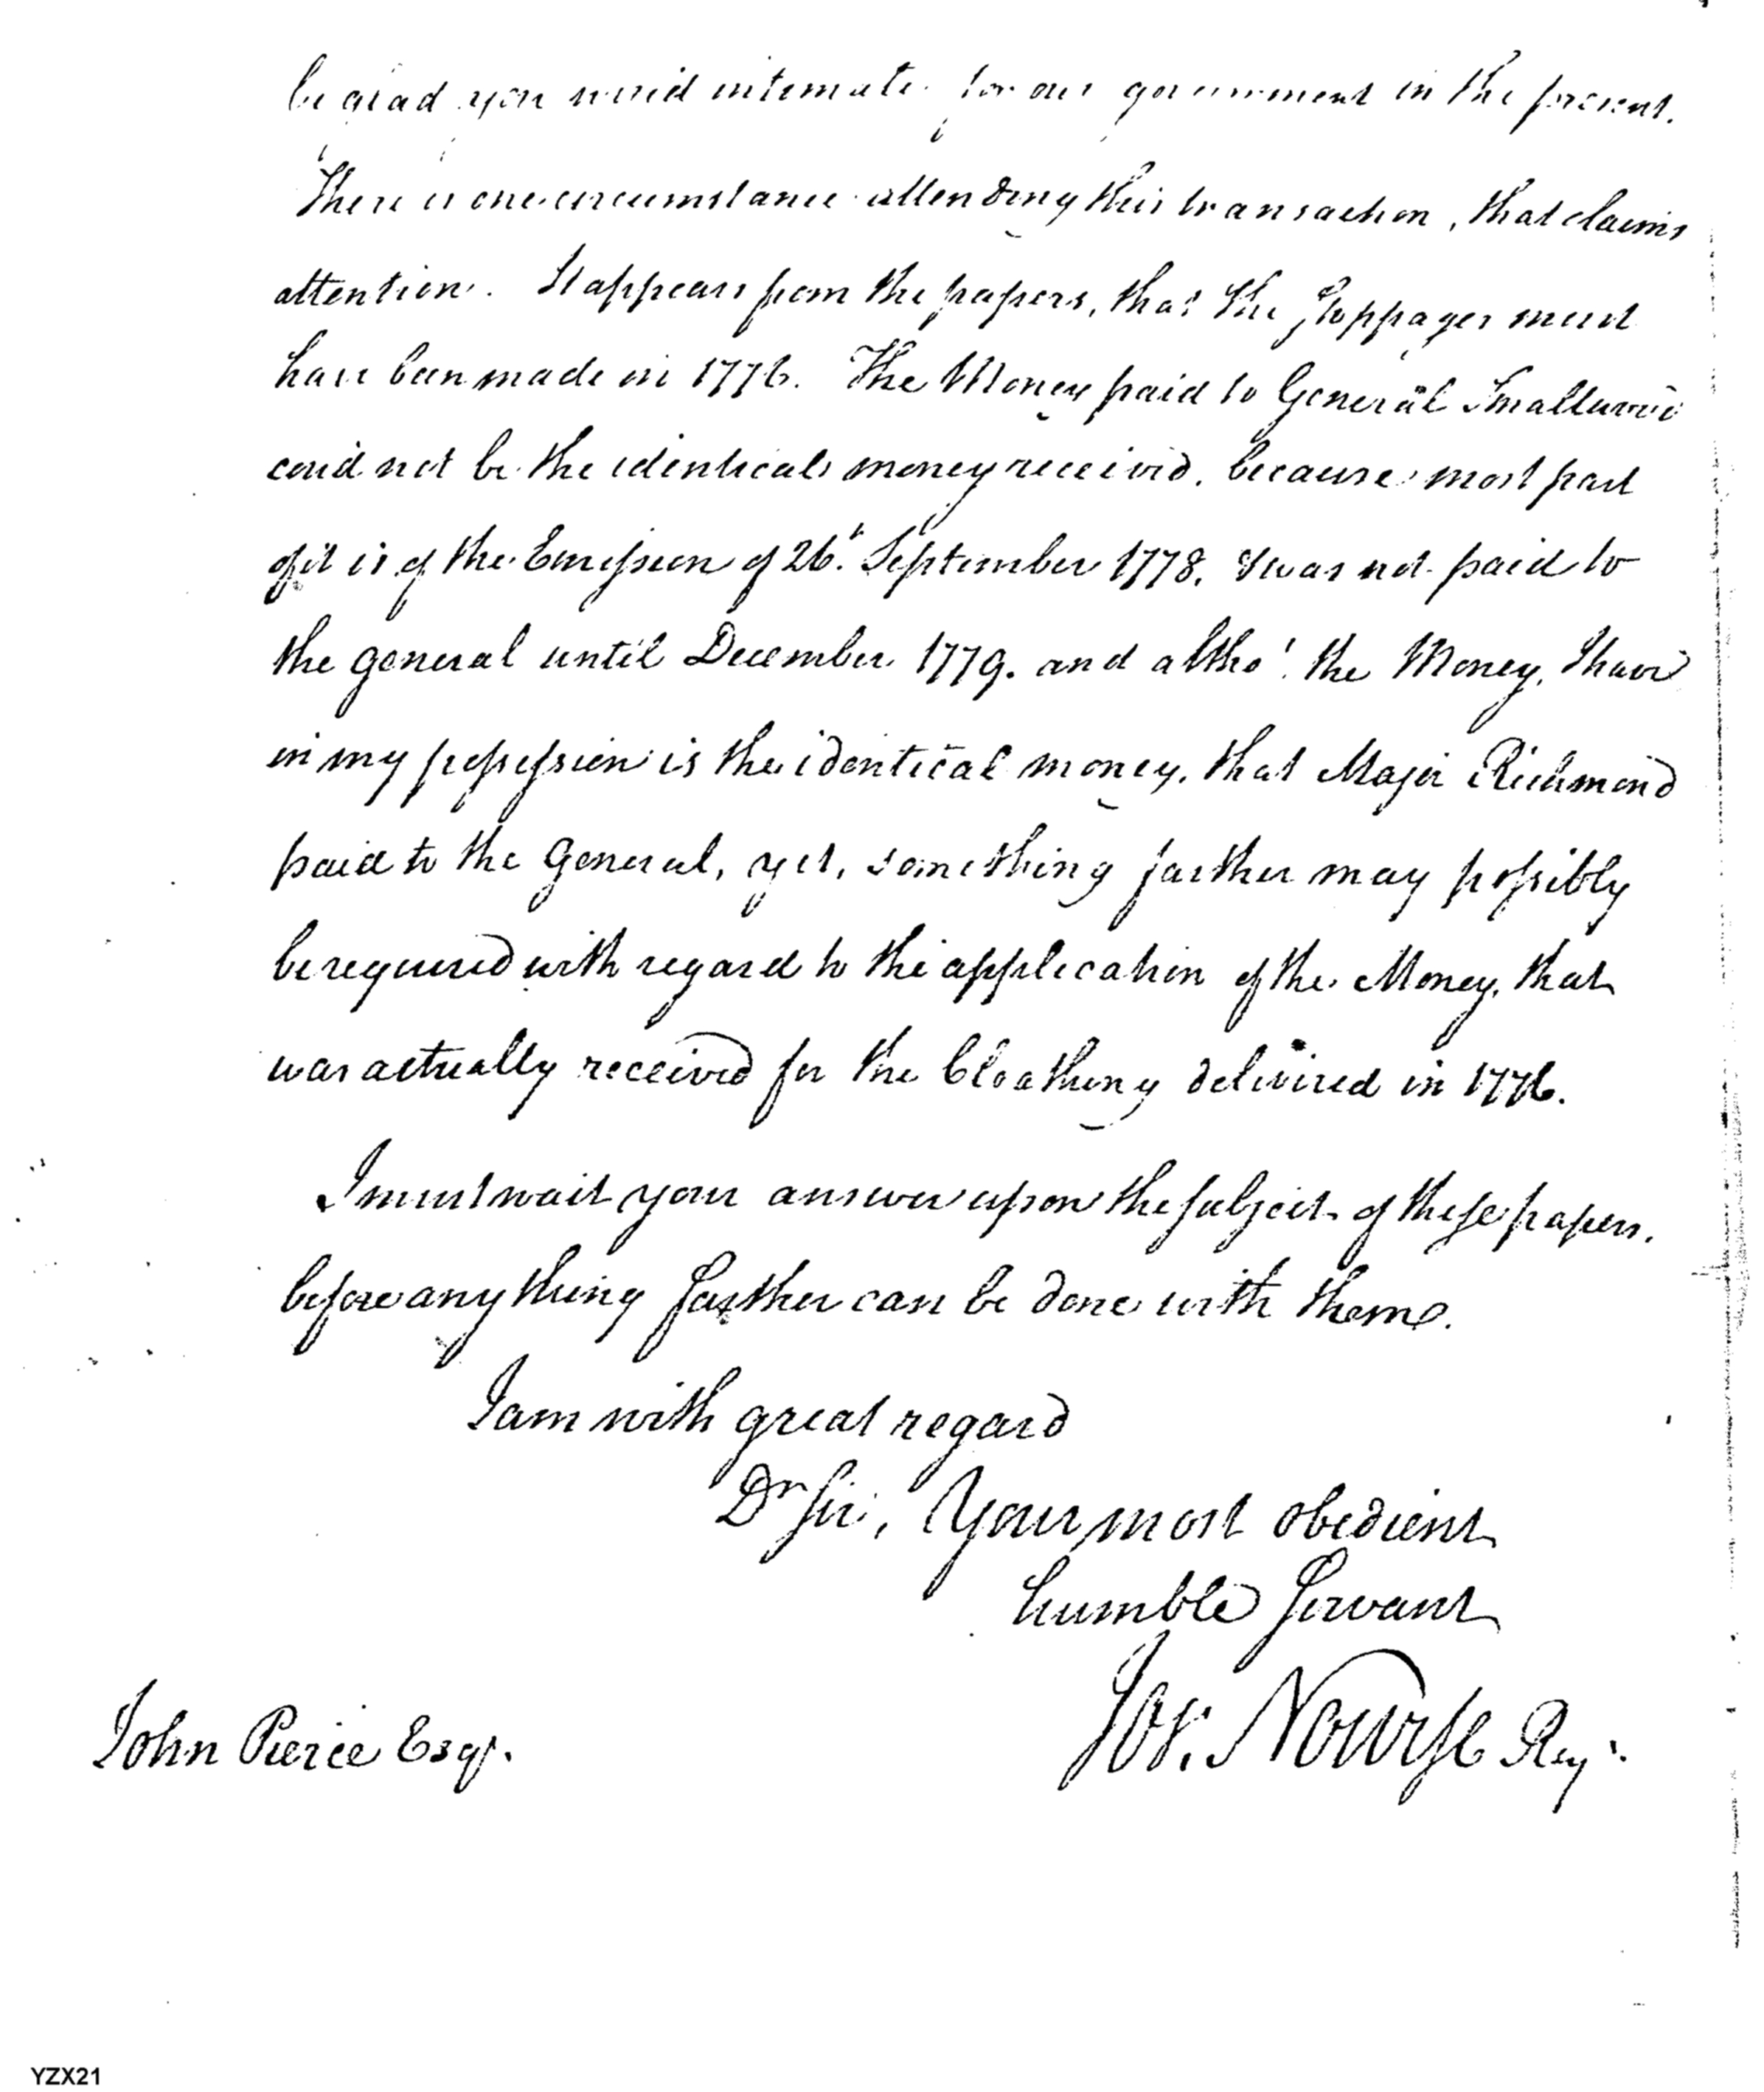 be glad you would intimate for our government in the present.
There is one circumstance attending this transaction, that claims
attention. It appears from the papers, that the Stoppages must
have been made in 1776. The Money paid to General Smallwood
could not be the identical money received, because most part
of it is of the Emission of 26t. September 1778. & was not paid to
the general until December 1779. and altho' the Money, I have
in my possession is the identical money, that Major Richmond
paid to the General, yet, something farther may possibly
be required with regard to the application of the Money, that
was actually received for the Cloathing delivered in 1776.
I must wait your answer upon the subject of these papers,
before any thing farther can be done with them.
I am with great regard
Dr Sir, Your most obedient
humble Servant
Jos. Nourse Reg:
John Pierce Esqr.
YZX21